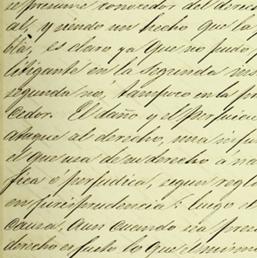 se presume conocedor del derecho
al, y siendo un hecho que la p
bla, es claro ya que no pudo,
litigante en la segunda ins
segunda no, tampoco en la pr
cedor. El daño y el perjuicio
ataque al derecho, una infra
el que usa de su derecho á na
fica é perjudica, segun regla
en jurisprudencia: luego el
causa, aun cuando sea pres
derecho es justo lo que el mism